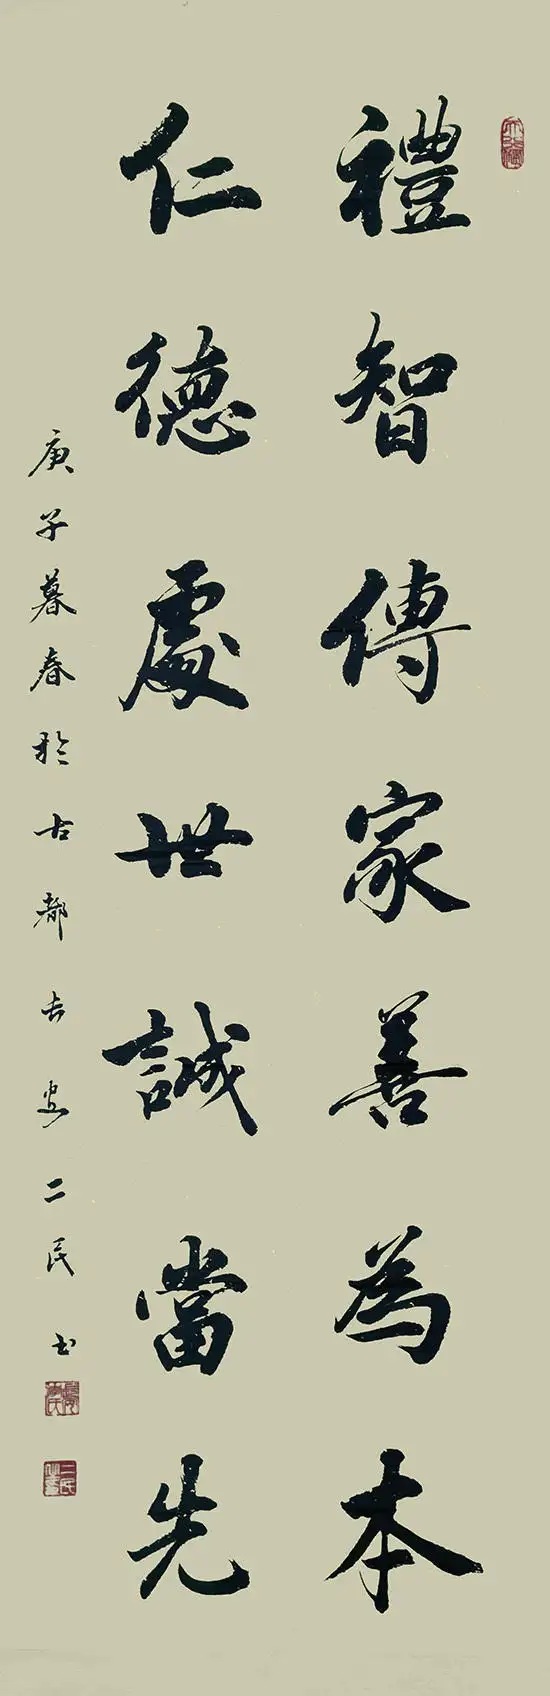 禮智傳家善為本
仁德處世誠當先
庚子暮春於古都長安二民书